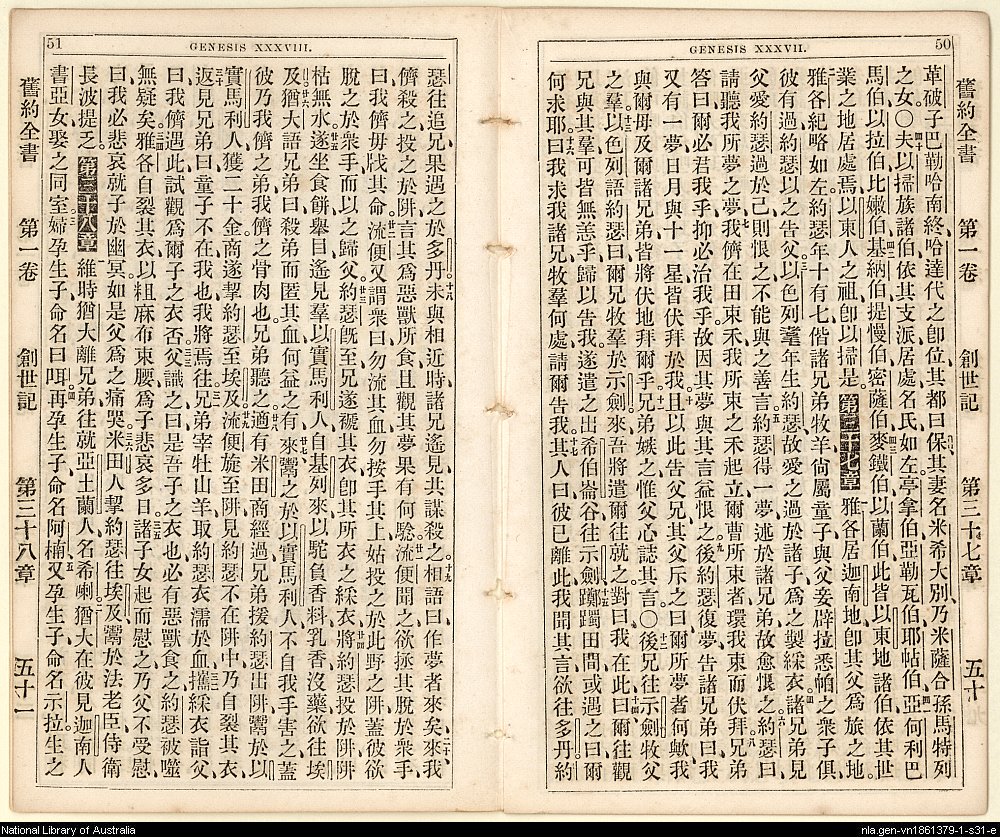 50
GENESIS XXXVII.
舊約全書 第一卷 創世記 第三十七章 五十
革破子巴勒哈南終、哈達代之卽位、其都曰保、其妻名米希大別、乃米薩合孫馬特列
之女。○夫以掃族諸伯、依其支派居處名氏如左、亭拿伯、亞勒瓦伯、耶帖伯、亞何利巴
馬伯、以拉伯、比嫩伯、基納伯、提慢伯、密薩伯、麥鐵伯、以蘭伯、此皆以東地諸伯、依其世
業之地居處焉、以東人之祖、卽以掃是。第三十七章 雅各居迦南地、卽其父爲旅之地。
雅各紀略如左、約瑟年十有七、偕諸兄弟牧羊、尙屬童子、與父妾辟拉悉帕之衆子俱、
彼有過、約瑟以之告父。以色列耄年生約瑟、故愛之過於諸子、爲之製綵衣。諸兄弟見
父愛約瑟過於己、則恨之、不能與之善言。約瑟得一夢、述於諸兄弟、故愈恨之。約瑟曰、
請聽我所夢之夢、我儕在田束禾、我所束之禾起立、爾曹所束者環我束而伏拜。兄弟
答曰、爾必君我乎、抑必治我乎、故因其夢與其言益恨之。後約瑟復夢、告諸兄弟曰、我
又有一夢、日月與十一星皆伏拜於我。且以此告父兄、其父斥之曰、爾所夢者何歟、我
與爾母及爾諸兄弟、皆將伏地拜爾乎。兄弟嫉之、惟父心誌其言。○後兄往示劍牧父
之羣。以色列語約瑟曰、爾兄牧羣於示劍、來、吾將遣爾往就之。對曰、我在此。曰、爾往觀
兄與其羣、可皆無恙乎、歸以告我、遂遣之出希伯崙谷、往示劍。躑躅田間、或遇之曰、爾
何求耶。曰、我求我諸兄牧羣何處、請爾告我。其人曰、彼已離此、我聞其言欲往多丹、約
51
GENESIS XXXVIII.
瑟往追兄、果遇之於多丹。未與相近時、諸兄遙見、共謀殺之。相語曰、作夢者來矣、來、我
儕殺之、投之於阱、言其爲惡獸所食、且觀其夢果有何騐。流便聞之、欲拯其脫於衆手、
曰、我儕毋戕其命。流便又謂衆曰、勿流其血、勿按手其上、姑投之於此野之阱、蓋彼欲
脫之於衆手、而以之歸父。約瑟旣至、兄遂褫其衣、卽其所衣之綵衣、將約瑟投於阱、阱
枯無水。遂坐食餅、舉目遙見羣以實馬利人、自基列來、以駝負香料乳香沒藥、欲往埃
及。猶大語兄弟曰、殺弟而匿其血、何益之有。來、鬻之於以實馬利人、不自我手害之、蓋
彼乃我儕之弟、我儕之骨肉也、兄弟聽之。適有米田商經過、兄弟援約瑟出阱、鬻於以
實馬利人、獲二十金、商遂挈約瑟至埃及。流便旋至阱、見約瑟不在阱中、乃自裂其衣、
返見兄弟曰、童子不在、我也、我將焉往。兄弟宰牡山羊、取約瑟衣濡於血、攜綵衣詣父
曰、我儕遇此、試觀爲爾子之衣否。父識之、曰、是吾子之衣也、必有惡獸食之、約瑟被噬
無疑矣。雅各自裂其衣、以粗麻布束腰、爲子悲哀多日。諸子女起而慰之、乃父不受慰、
曰、我必悲哀就子於幽冥、如是父爲之痛哭。米田人挈約瑟往埃及、鬻於法老臣、侍衛
長波提乏。第三十八章 維時猶大離兄弟、往就亞土蘭人名希喇。猶大在彼見迦南人
書亞女、娶之同室。婦孕生子、命名曰咡。再孕生子、命名阿楠。又孕生子、命名示拉。生之
舊約全書 第一卷 創世記 第三十八章 五十一
National Library of Australia
nla.gen-vn1861379-1-s31-e